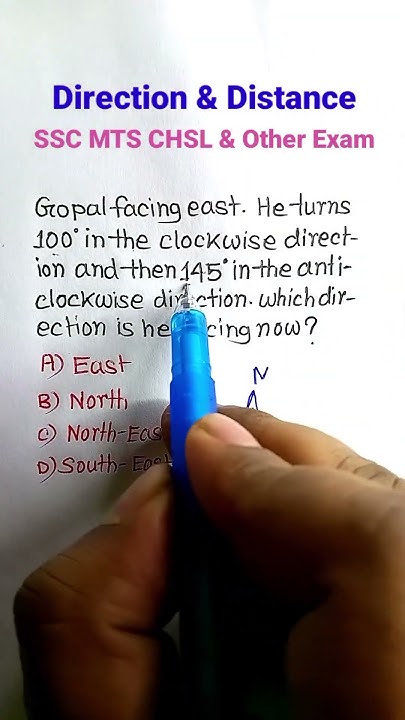 Direction & Distance
SSC MTS CHSL & Other Exam
Gopal facing east. He turns
100° in the clockwise direct-
ion and then 145° in the anti-
clockwise direction. which dir-
ection is he facing now?
A) East
B) North
C) North-Eas
D) South-East
N